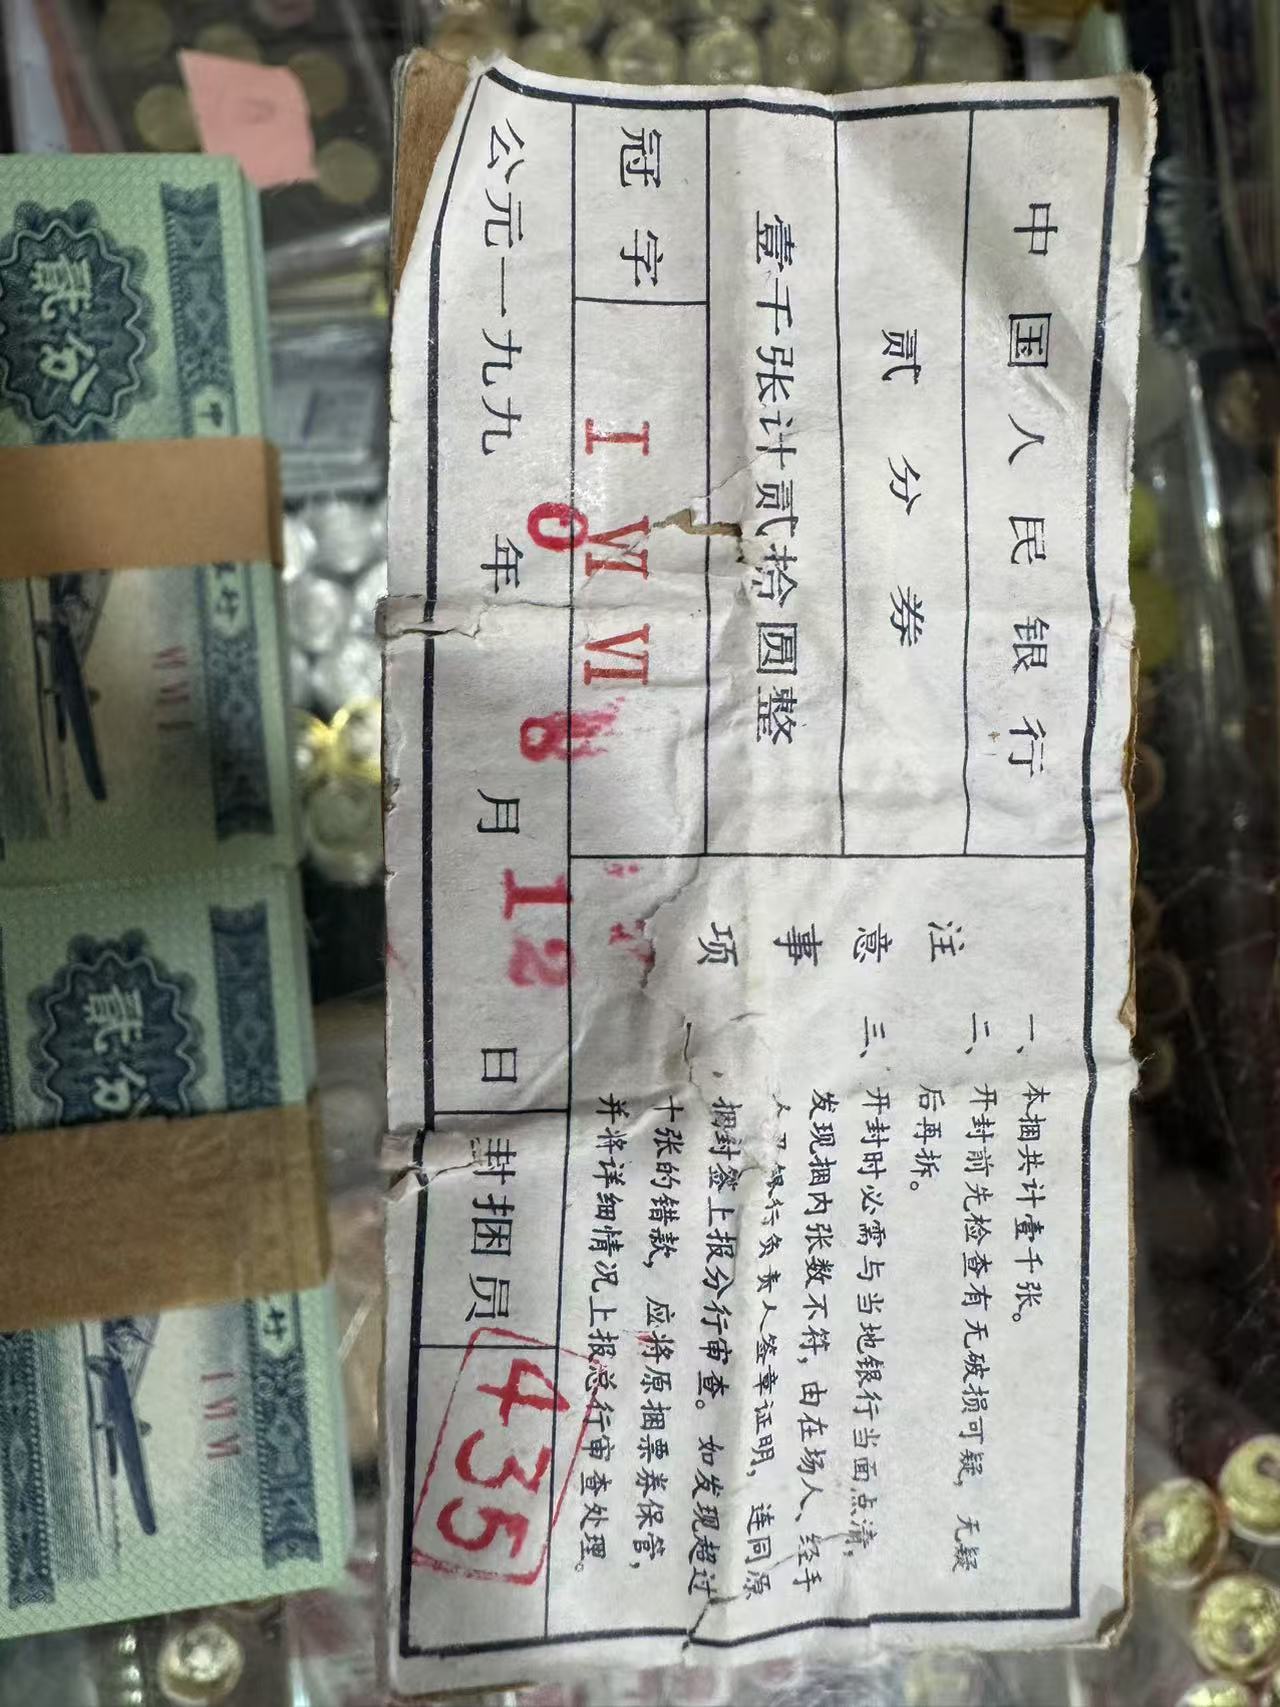 中国人民银行
贰分券
壹千张计贰拾圆整
冠字 I VI VI
公元一九九0年8月12日
封捆员 435
注意事项
一、本捆共计壹千张。
二、开封前先检查有无破损可疑，无疑
后再拆。
三、开封时必需与当地银行当面点清，
发现捆内张数不符，由在场人、经手
人及银行负责人签章证明，连同原
捆封签上报分行审查。如发现超过
十张的错款，应将原捆票券保管，
并将详细情况上报总行审查处理。
贰分
贰分